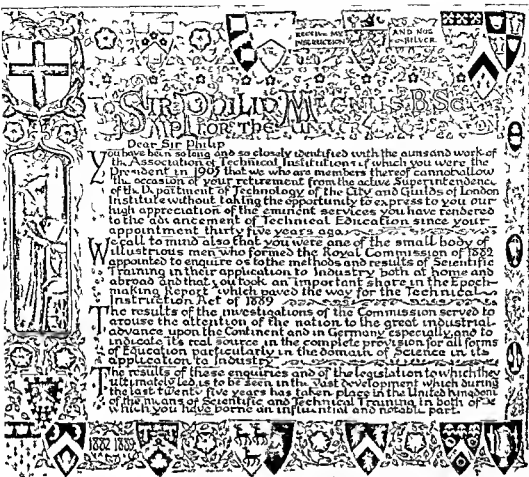 RECEIVE MY
INSTRUCTION
AND NOT
SILVER
To SIR PHILIP MAGNUS. B.Sc.
M.P. FOR THE
Dear Sir Philip
You have been so long and so closely identified with the aims and work of
the Association of Technical Institutions of which you were the
President in 1905 that we who are members thereof cannot allow
the occasion of your retirement from the active Superintendence
of the Department of Technology of the City and Guilds of London
Institute without taking the opportunity to express to you our
high appreciation of the eminent services you have rendered
to the advancement of Technical Education since your
appointment thirty five years ago.
We call to mind also that you were one of the small body of
illustrious men who formed the Royal Commission of 1882
appointed to enquire as to the methods and results of Scientific
Training in their application to Industry both at home and
abroad and that you took an important share in the Epoch-
making Report which paved the way for the Technical
Instruction Act of 1889
The results of the investigations of the Commission served to
arouse the attention of the nation to the great industrial
advance upon the Continent and in Germany especially, and to
indicate its real source in the complete provision for all forms
of Education particularly in the domain of Science in its
application to Industry
The results of these enquiries and of the legislation to which they
ultimately led, is to be seen in the vast development which during
the last twenty five years has taken place in the United Kingdom
of the means of Scientific and Technical Training, in both of
which you have borne an influential and notable part.
1882 1889